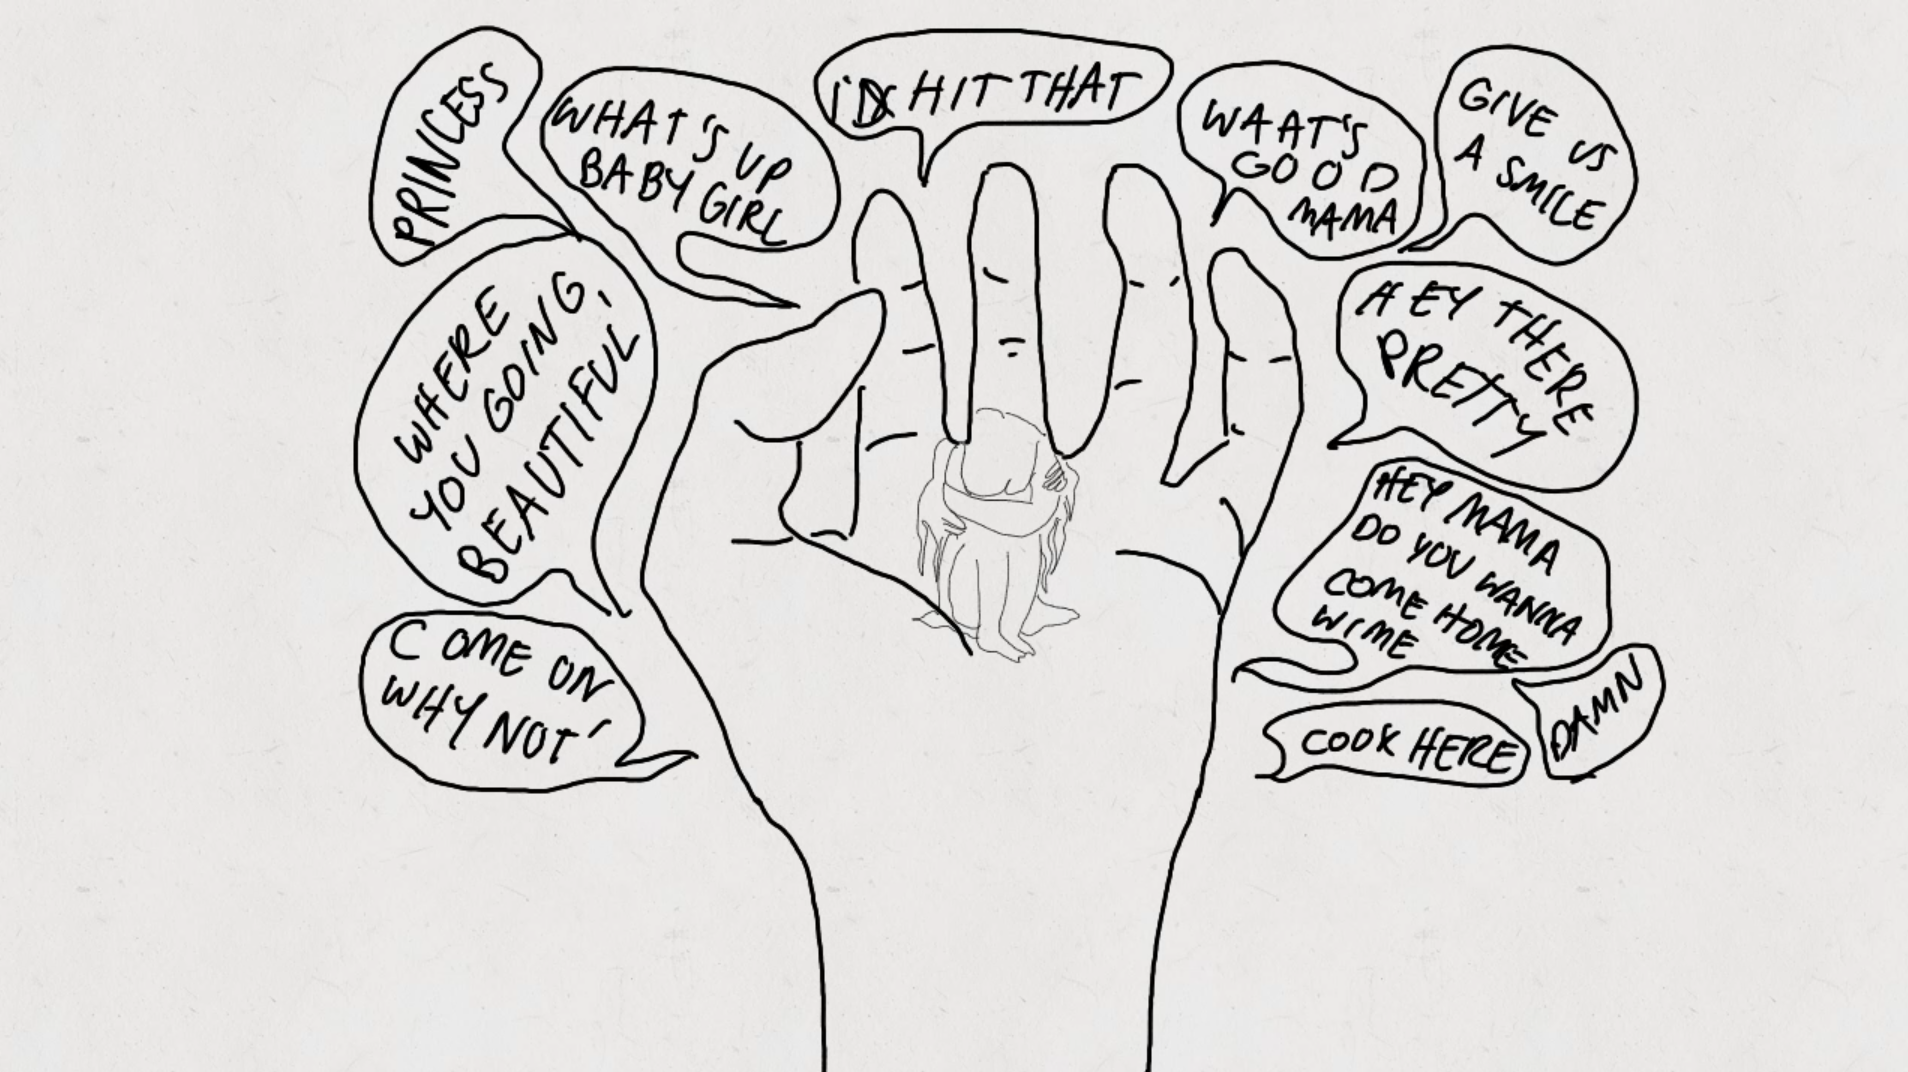 PRINCESS
WHAT'S UP
BABY GIRL
I'D HIT THAT
WAAT'S
GOOD
MAMA
GIVE US
A SMILE
WHERE
YOU GOING,
BEAUTIFUL
HEY THERE
PRETTY
HEY MAMA
DO YOU WANNA
COME HOME
WIME
COME ON
WHY NOT
COOK HERE
DAMN